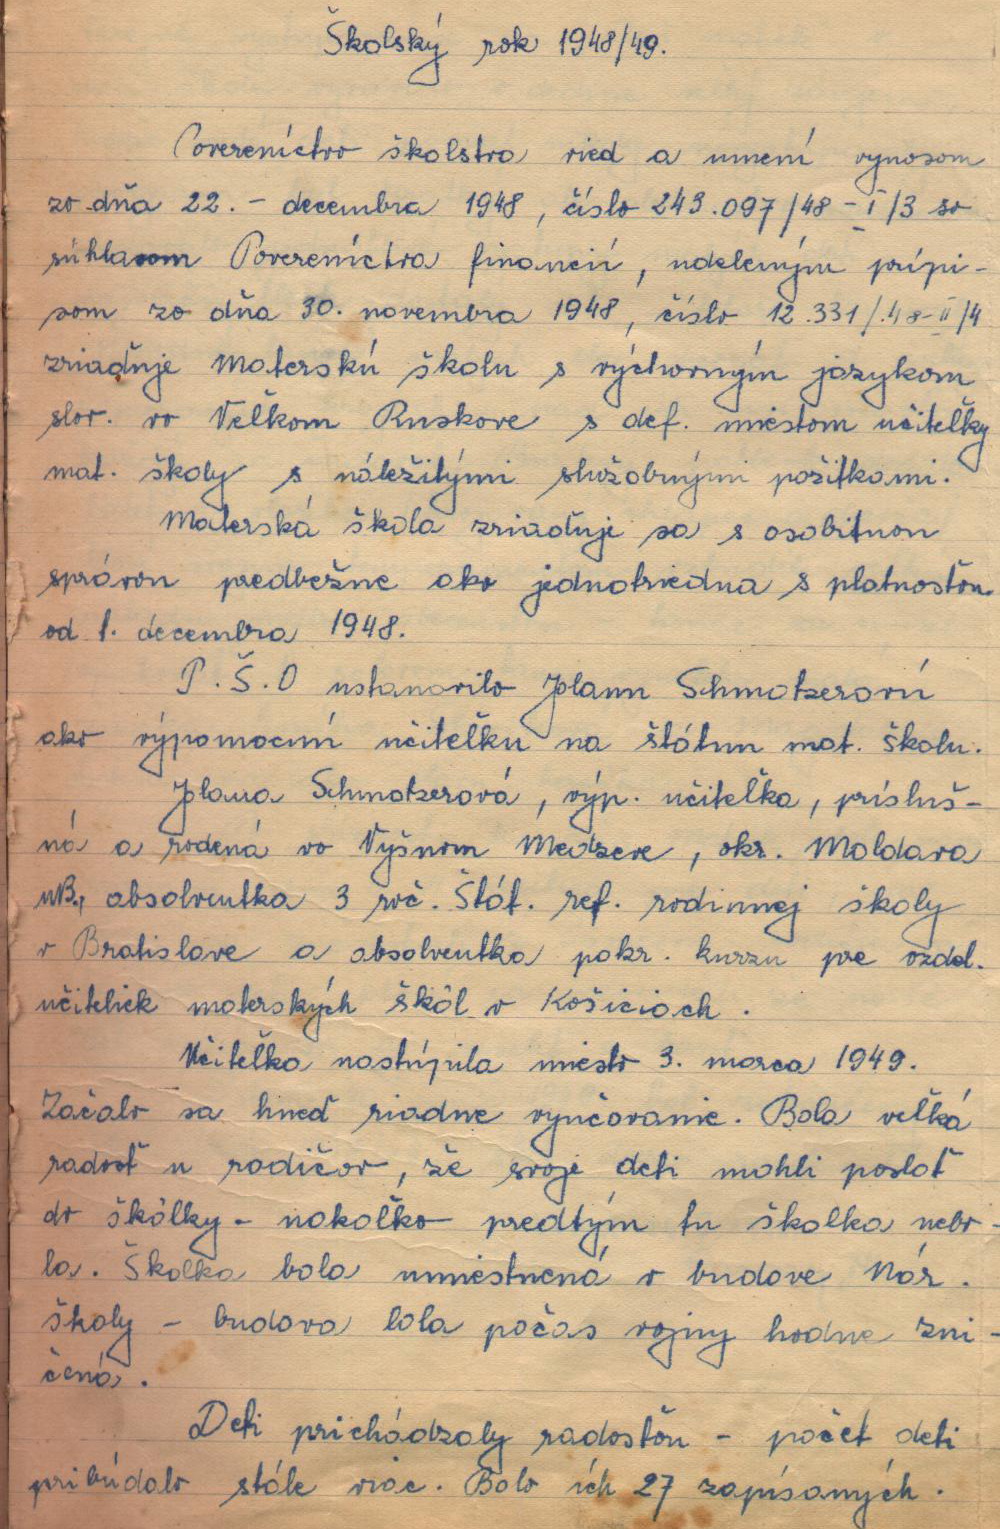 Školský rok 1948/49.
Povereníctvo školstva vied a umení výnosom
zo dňa 22. - decembra 1948, číslo 243.097/48 - I/3 so
súhlasom Povereníctva financií, udeleným prípi-
som zo dňa 30. novembra 1948, číslo 12.331/48-II/4
zriaďuje Materskú školu s výchovným jazykom
slov. vo Veľkom Ruskove s def. miestom učiteľky
mat. školy s náležitými služobnými požitkami.
Materská škola zriaďuje sa s osobitnou
správou predbežne ako jednotriedna s platnosťou
od 1. decembra 1948.
P.Š.O ustanovilo Jolanu Schmotzerovú
ako výpomocnú učiteľku na štátnu mat. školu.
Jolana Schmotzerová, výp. učiteľka, prísluš-
ná a rodená vo Vyšnom Medzeve, okr. Moldava
n/B., absolventka 3 roč. Štát. ref. rodinnej školy
v Bratislave a absolventka pokr. kurzu pre vzdel.
učiteliek materských škôl v Košiciach.
Učiteľka nastúpila miesto 3. marca 1949.
Začalo sa hneď riadne vyučovanie. Bola veľká
radosť u rodičov, že svoje deti mohli poslať
do škôlky - nakoľko predtým tu školka nebo-
la. Školka bola umiestnená v budove Nár.
školy - budova bola počas vojny hodne zni-
čená.
Deti prichádzaly radosťou - počet detí
pribúdalo stále viac. Bolo ích 27 zapísaných.